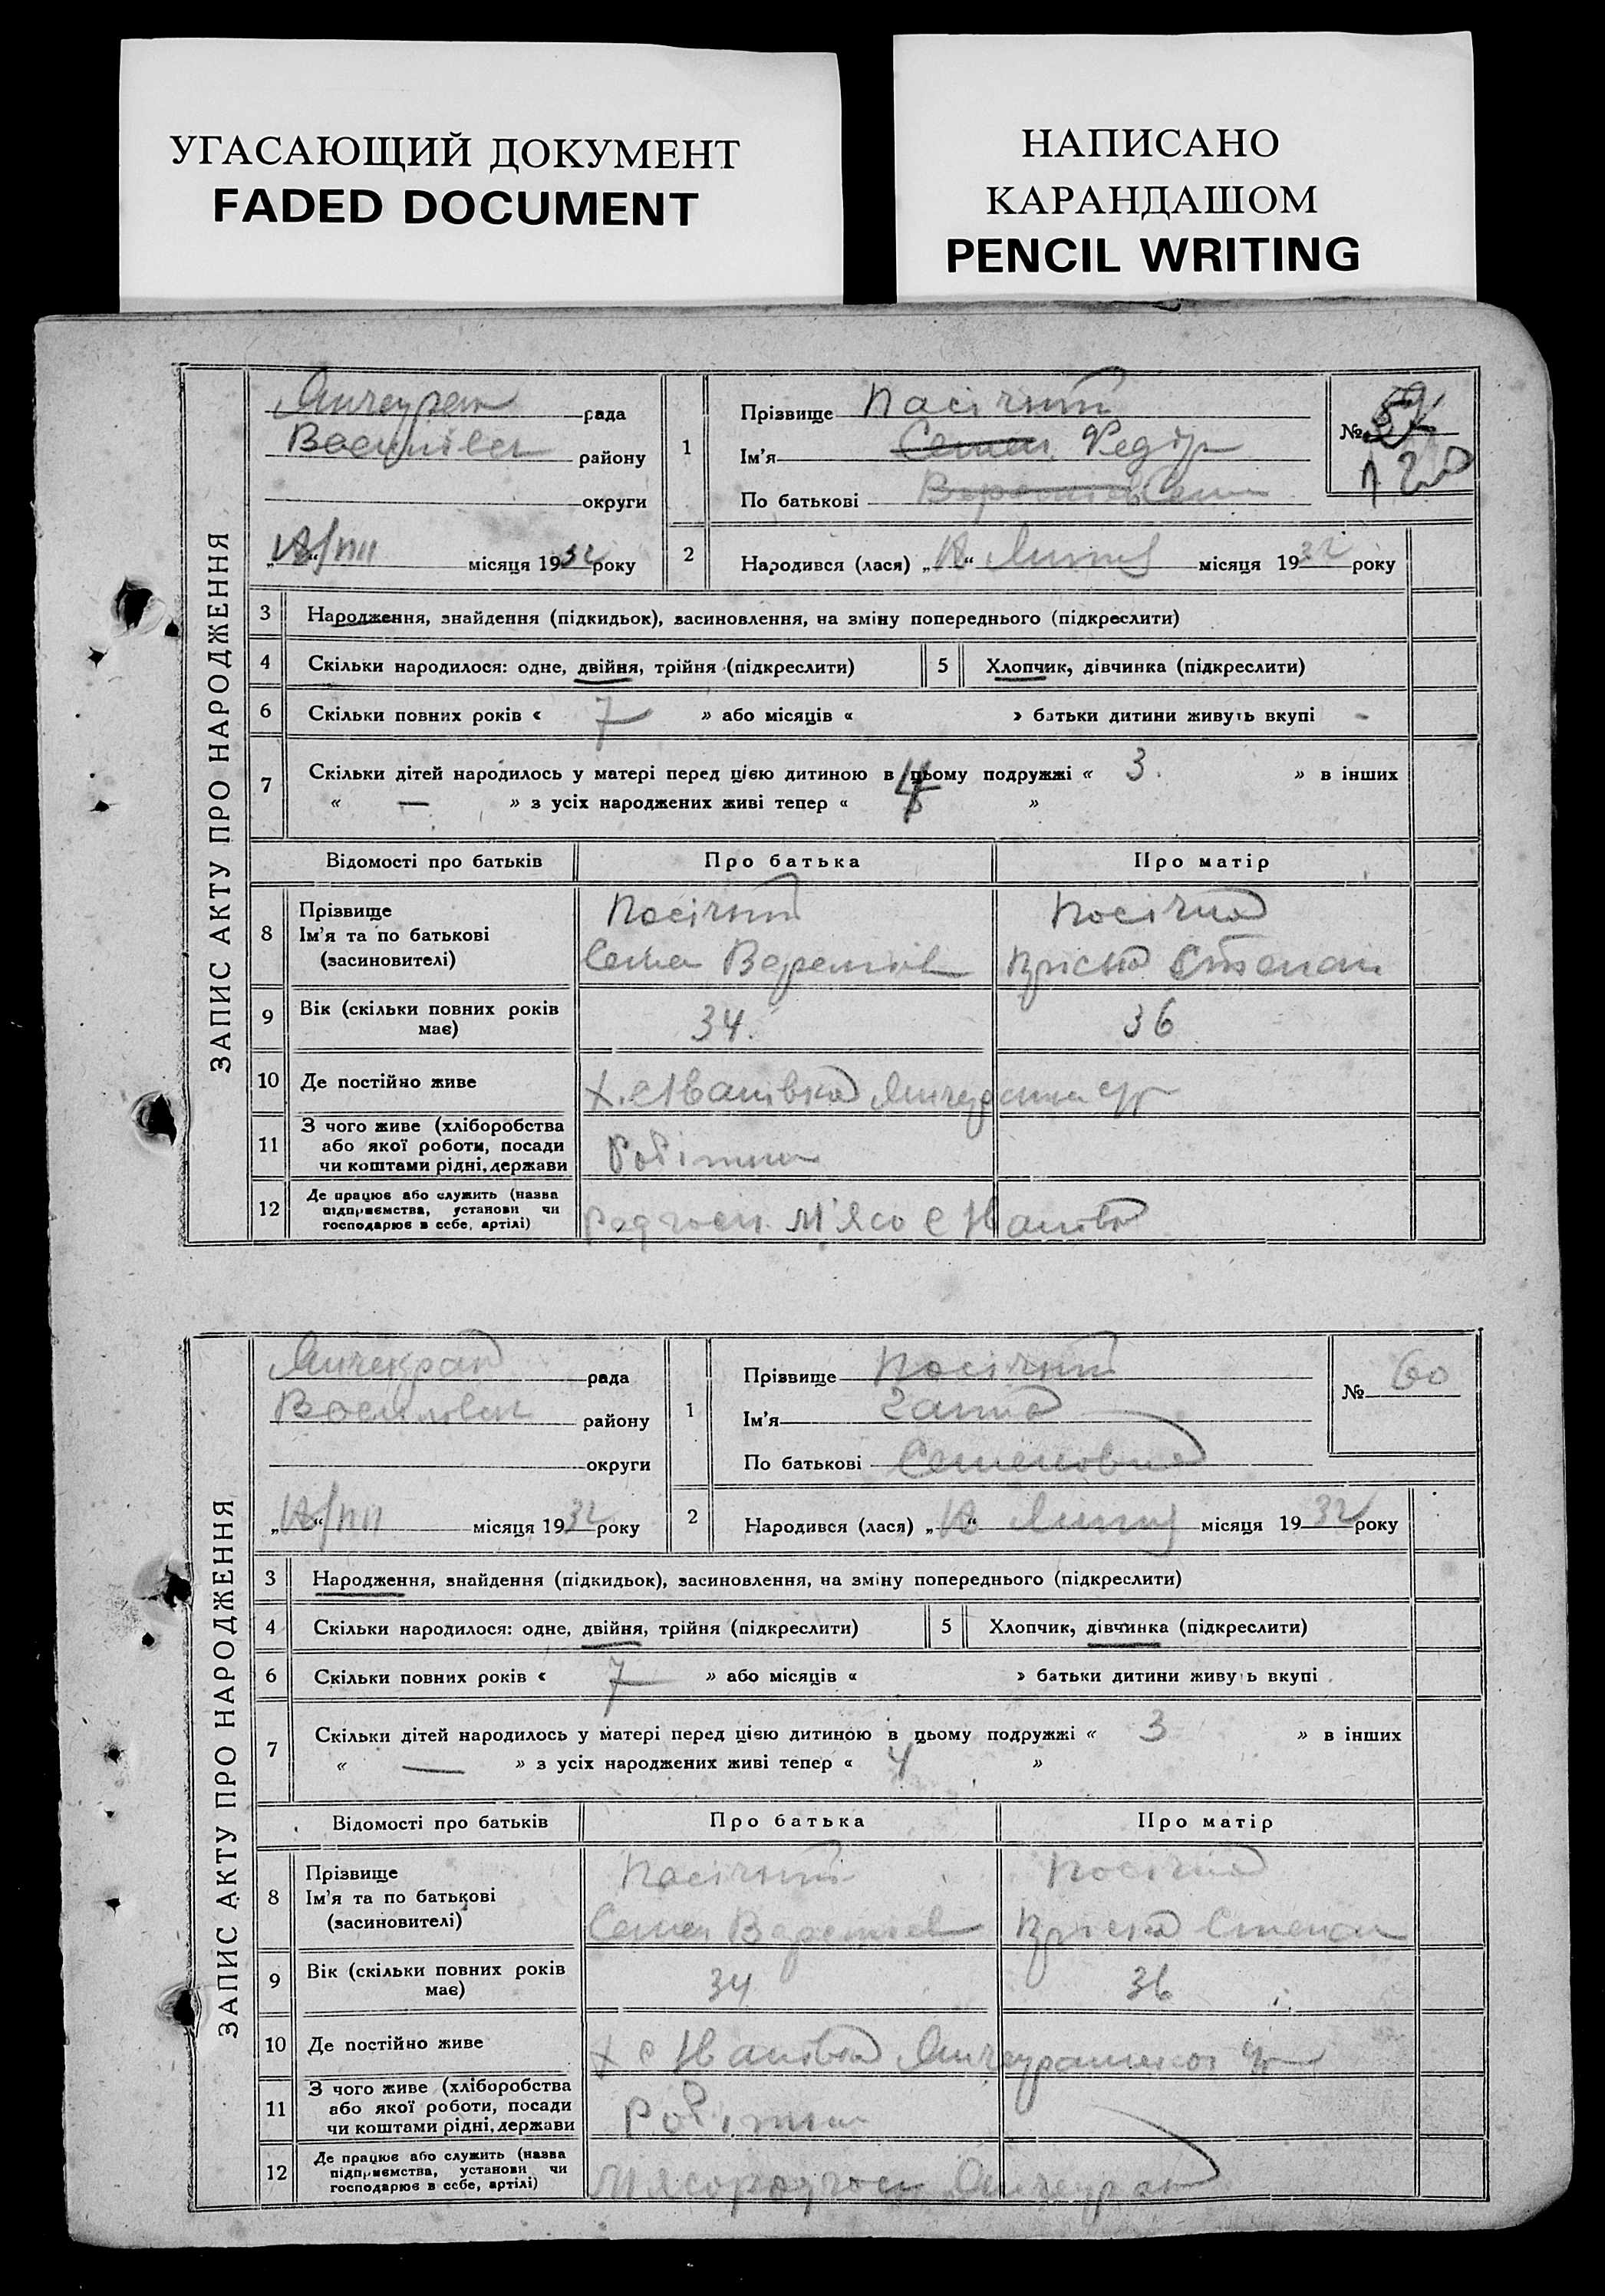 УГАСАЮЩИЙ ДОКУМЕНТ
FADED DOCUMENT
НАПИСАНО
КАРАНДАШОМ
PENCIL WRITING
ЗАПИС АКТУ ПРО НАРОДЖЕННЯ
рада
Василівск району
округи
місяця 1932 року
1
Прізвище Пасічний
Ім'я Семен Федір
По батькові
№
2
Народився (лася) „ “ Липня місяця 1932 року
3 Народження, знайдення (підкидьок), засиновлення, на зміну попереднього (підкреслити)
4 Скільки народилося: одне, двійня, трійня (підкреслити) 5 Хлопчик, дівчинка (підкреслити)
6 Скільки повних років « 7 » або місяців « » батьки дитини живуть вкупі -
7 Скільки дітей народилось у матері перед цією дитиною в цьому подружжі « 3. » в інших
« — » з усіх народжених живі тепер « 4 »
Відомості про батьків Про батька Про матір
8 Прізвище Пасічний Пасічна
Ім'я та по батькові
(засиновителі) Семен Веремієв Пріська Степан
9 Вік (скільки повних років
має) 34. 36
10 Де постійно живе Х. Іванівка
11 З чого живе (хліборобства
або якої роботи, посади
чи коштами рідні, держави Робітник
12 Де працює або служить (назва
підприємства, установи чи
господарює в себе, артілі) Радгосп М'ясо
ЗАПИС АКТУ ПРО НАРОДЖЕННЯ
рада
Василівск району
округи
місяця 1932 року
1
Прізвище Пасічний
Ім'я Ганна
По батькові Семеновна
№ 60
2
Народився (лася) „ “ Липня місяця 1932 року
3 Народження, знайдення (підкидьок), засиновлення, на зміну попереднього (підкреслити)
4 Скільки народилося: одне, двійня, трійня (підкреслити) 5 Хлопчик, дівчинка (підкреслити)
6 Скільки повних років « 7 » або місяців « » батьки дитини живуть вкупі
7 Скільки дітей народилось у матері перед цією дитиною в цьому подружжі « 3 » в інших
« — » з усіх народжених живі тепер « 4 »
Відомості про батьків Про батька Про матір
8 Прізвище Пасічний Пасічна
Ім'я та по батькові
(засиновителі) Семен Веремієв Пріська Степан
9 Вік (скільки повних років
має) 34 36
10 Де постійно живе Х Іванівка
11 З чого живе (хліборобства
або якої роботи, посади
чи коштами рідні, держави Робітник
12 Де працює або служить (назва
підприємства, установи чи
господарює в себе, артілі) М'ясорадгосп